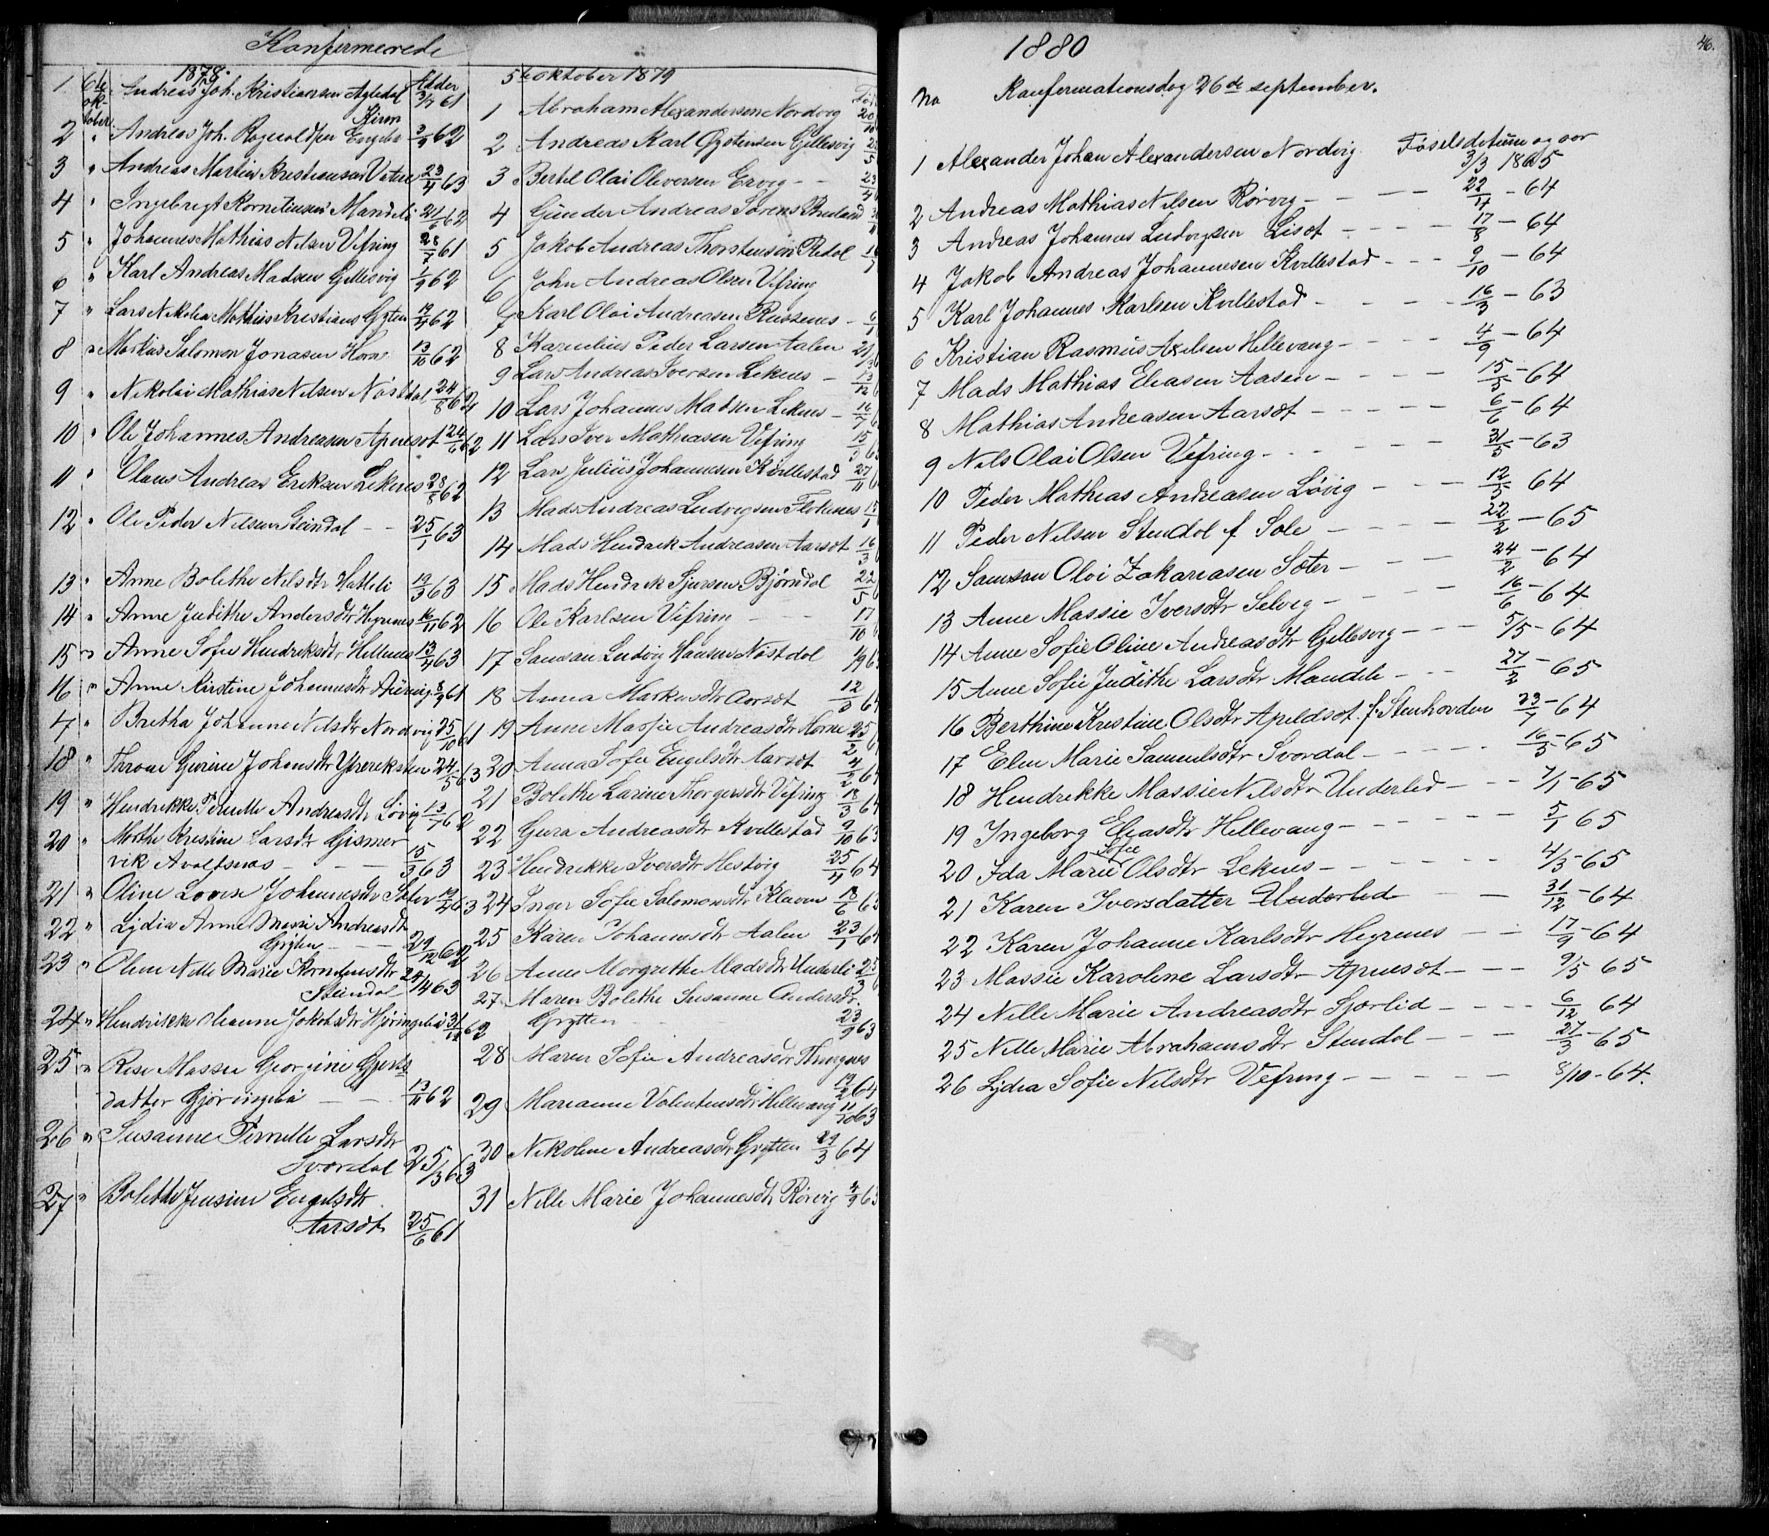 Konfirmerede
1878. Alder
1 6te oktober Andreas Joh. Kristiansen Apledal 3/7 61
2 " Andreas Joh. Engebø 3/9 62
3 " Andreas Martin Kristiansen 23/4 63
4 " Ingebrigt Korneliusen Mandeli 21/6 62
5 " Johannes Mathias Nilsen Vefring 28/7 61
6 " Karl Andreas Madsen Gjellesvig 1/9 62
7 " Lars Nikolai Mathias Kristians 62
8 " Markus Salomon Jonasen Horne 13/10 62
9 " Nikolai Mathias Nilsen Nøstdal 24/8 62
10 " Ole Johannes Andreasen Apnesøt 24/6 62
11 " Olaus Andreas Eriksen Lekenes 28/8 62
12 " Ole Peder Nilsen Steindal - - 25/1 63
13 " Anne Bolethe Nilsdtr Hatleli 19/3 63
14 " Anne Judithe Andersdtr Hegrenes 16/11 62
15 " Anne Sofie Hendriksdtr 13/4 63
16 " Anne Kirstine Johannesdtr 61
17 " Bretha Johanne Nilsdtr Nordvig 25/10 61
18 " Johansdtr 24/5 63
19 " Hendrikke Pernille Andreasdtr Løvig 13/7 62
20 " Marthe Kristine Larsdtr Gismer
vik - - 15/3 63
21 " Oline Lovise Johannesdtr Sæter 63
22 " Lydia Anne Massi Andreasdtr
Gryten - - 29/12 62
23 " Oline Nille Marie Kornelius dtr
Steindal 24/4 63
24 " Hendrikke Jakobsdtr 62
25 " Massie Georgine Gjerts
datter - - 13/11 62
26 " Susanne Pernille Larsdtr
Svordal 25/3 63
27 " Bolethe Jensine Engelsdtr
Aarsøt 25/6 61
5te oktober 1879
1 Abraham Alexandersen Nordvig
2 Andreas Karl Øystensen Gjellesvig
3 Bertel Olai Oliversen Ervig - -
4 Gunder Andreas Sørens
5 Jakob Andreas Thorstensøn
6 John Andreas Olsen Vefring
7 Karl Olai Andreasen Russenes -
8 Kornelius Peder Larsen Aalen
9 Lars Andreas Iversen Lekenes - 13/12
10 Lars Johannes Madsen Lekenes - 16/7
11 Lars Iver Mathiasen Vefring 15/9
12 Lars Julius Johannesen Kvillestad 27/11
13 Mads Andreas Ludvigsen Flokenes
14 Mads Hendrik Andreasen Aarsøt 16/3
15 Mads Hendrik Sjursen Bjørndal 22/5
16 Ole Karlsen Vefring - - 17/10
17 Samson Ludvig Hansen Nøstdal 1/9
18 Anna Markusdtr Aarsøt 12/2 64
19 Anne Massie Andreasdtr Horne 25/2
20 Anna Sofie Engelsdtr Aarsøt 4/2 64
21 Bolethe Larine Thorgersdtr Vefring 18/3 64
22 Gura Andreasdtr Kvillestad 9/10 63
23 Hendrikke Iversdtr Hestvig 25/4 64
24 Inger Sofie Salomonsdtr Klaven 13/6 63
25 Karen Johannesdtr Aalen 23/1 64
26 Anne Margrethe Madsdtr Underli
27 Maren Bolethe Susanne Andersdtr.
Grytten 23/9 63
28 Maren Sofie Andreasdtr
19/2 64
29 Marianne Valentinsdtr Hillevang 11/10 63
30 Nikoline Andreasdtr Grytten 29/3 64
31 Nille Marie Johannesdtr Rørvig 63
46.
1880
No Konfirmationsdag 26de september.
Føselsdatum og aar
1 Alexander Johan Alexandersen Nordvig 3/3 1865
2 Andreas Mathias Nilsen Rørvig - - - 22/4 - 64
3 Andreas Johannes Ludvigsen Lisøt - - - - 17/8 - 64
4 Jakob Andreas Johannesen Kvillestad - - - 9/10 - 64
5 Karl Johannes Karlsen Kvillestad - - - 16/3 - 63
6 Kristian Rasmus Axelsen Hillevang - - - - 4/9 - 64
7 Mads Mathias Eliasen Aasen - - - - 15/5 - 64
8 Mathias Andreasen Aarsøt - - - - - 6/6 - 64
9 Nils Olai Olsen Vefring - - - - - 31/5 - 63
10 Peder Mathias Andreasen Løvig - - - 12/5 64
11 Peder Nilsen Stendal f Sole - - - 22/2 - 65
12 Samson Olai Zakariasen Sæter - - - 24/2 - 64
13 Anne Massie Iversdtr Selvig - - - - 16/6 - 64
14 Anne Sofie Oline Andreasdtr Gjellesvig - - - 5/5 - 64
15 Anne Sofie Judithe Larsdtr Mandele - - - 27/2 - 65
16 Berthine Kristine Olsdtr Apeldsøt f. Stenhovden 23/7 - 64
17 Elen Marie Samuelsdtr Svordal - - - - - 16/5 - 65
18 Hendrekke Massie Nilsdtr Underlid - - - 7/1 - 65
19 Ingeborg Eliasdtr Hillevang - - - - - - 5/1 65
20 Ida Marie Sofie Olsdtr Lekenes - - - - 4/3 - 65
21 Karen Iversdatter Underlid - 31/12 - 64
22 Karen Johanne Karlsdtr Hegrenes - - - 17/9 - 64
23 Massie Karoline Larsdtr Apnesøt - - - 9/5 65
24 Nille Marie Andreasdtr Sjorlid - - - - 6/12 64
25 Nille Marie Abrahamsdtr Stendal - - - 27/3 - 65
26 Lydia Sofie Nilsdtr Vefring - - - - - 8/10 - 64.